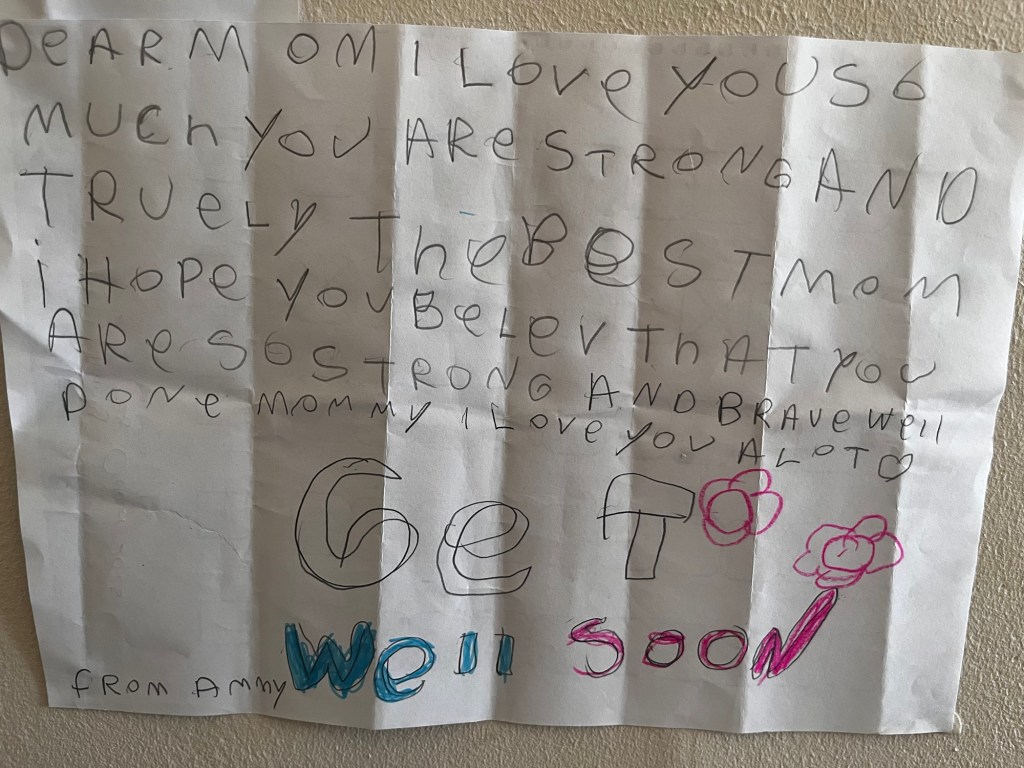 DeAR MOM I Love YOU SO
MUCh YOU ARe STRONG AND
TRUeLY The BeST MOM
i HoPe YOU BeLev ThAT YOU
ARe SO STRONG AND BRAve Well
DONe MOMMY I Love YOU A LOT ♡
GeT
Well SOON
fROM AMMY